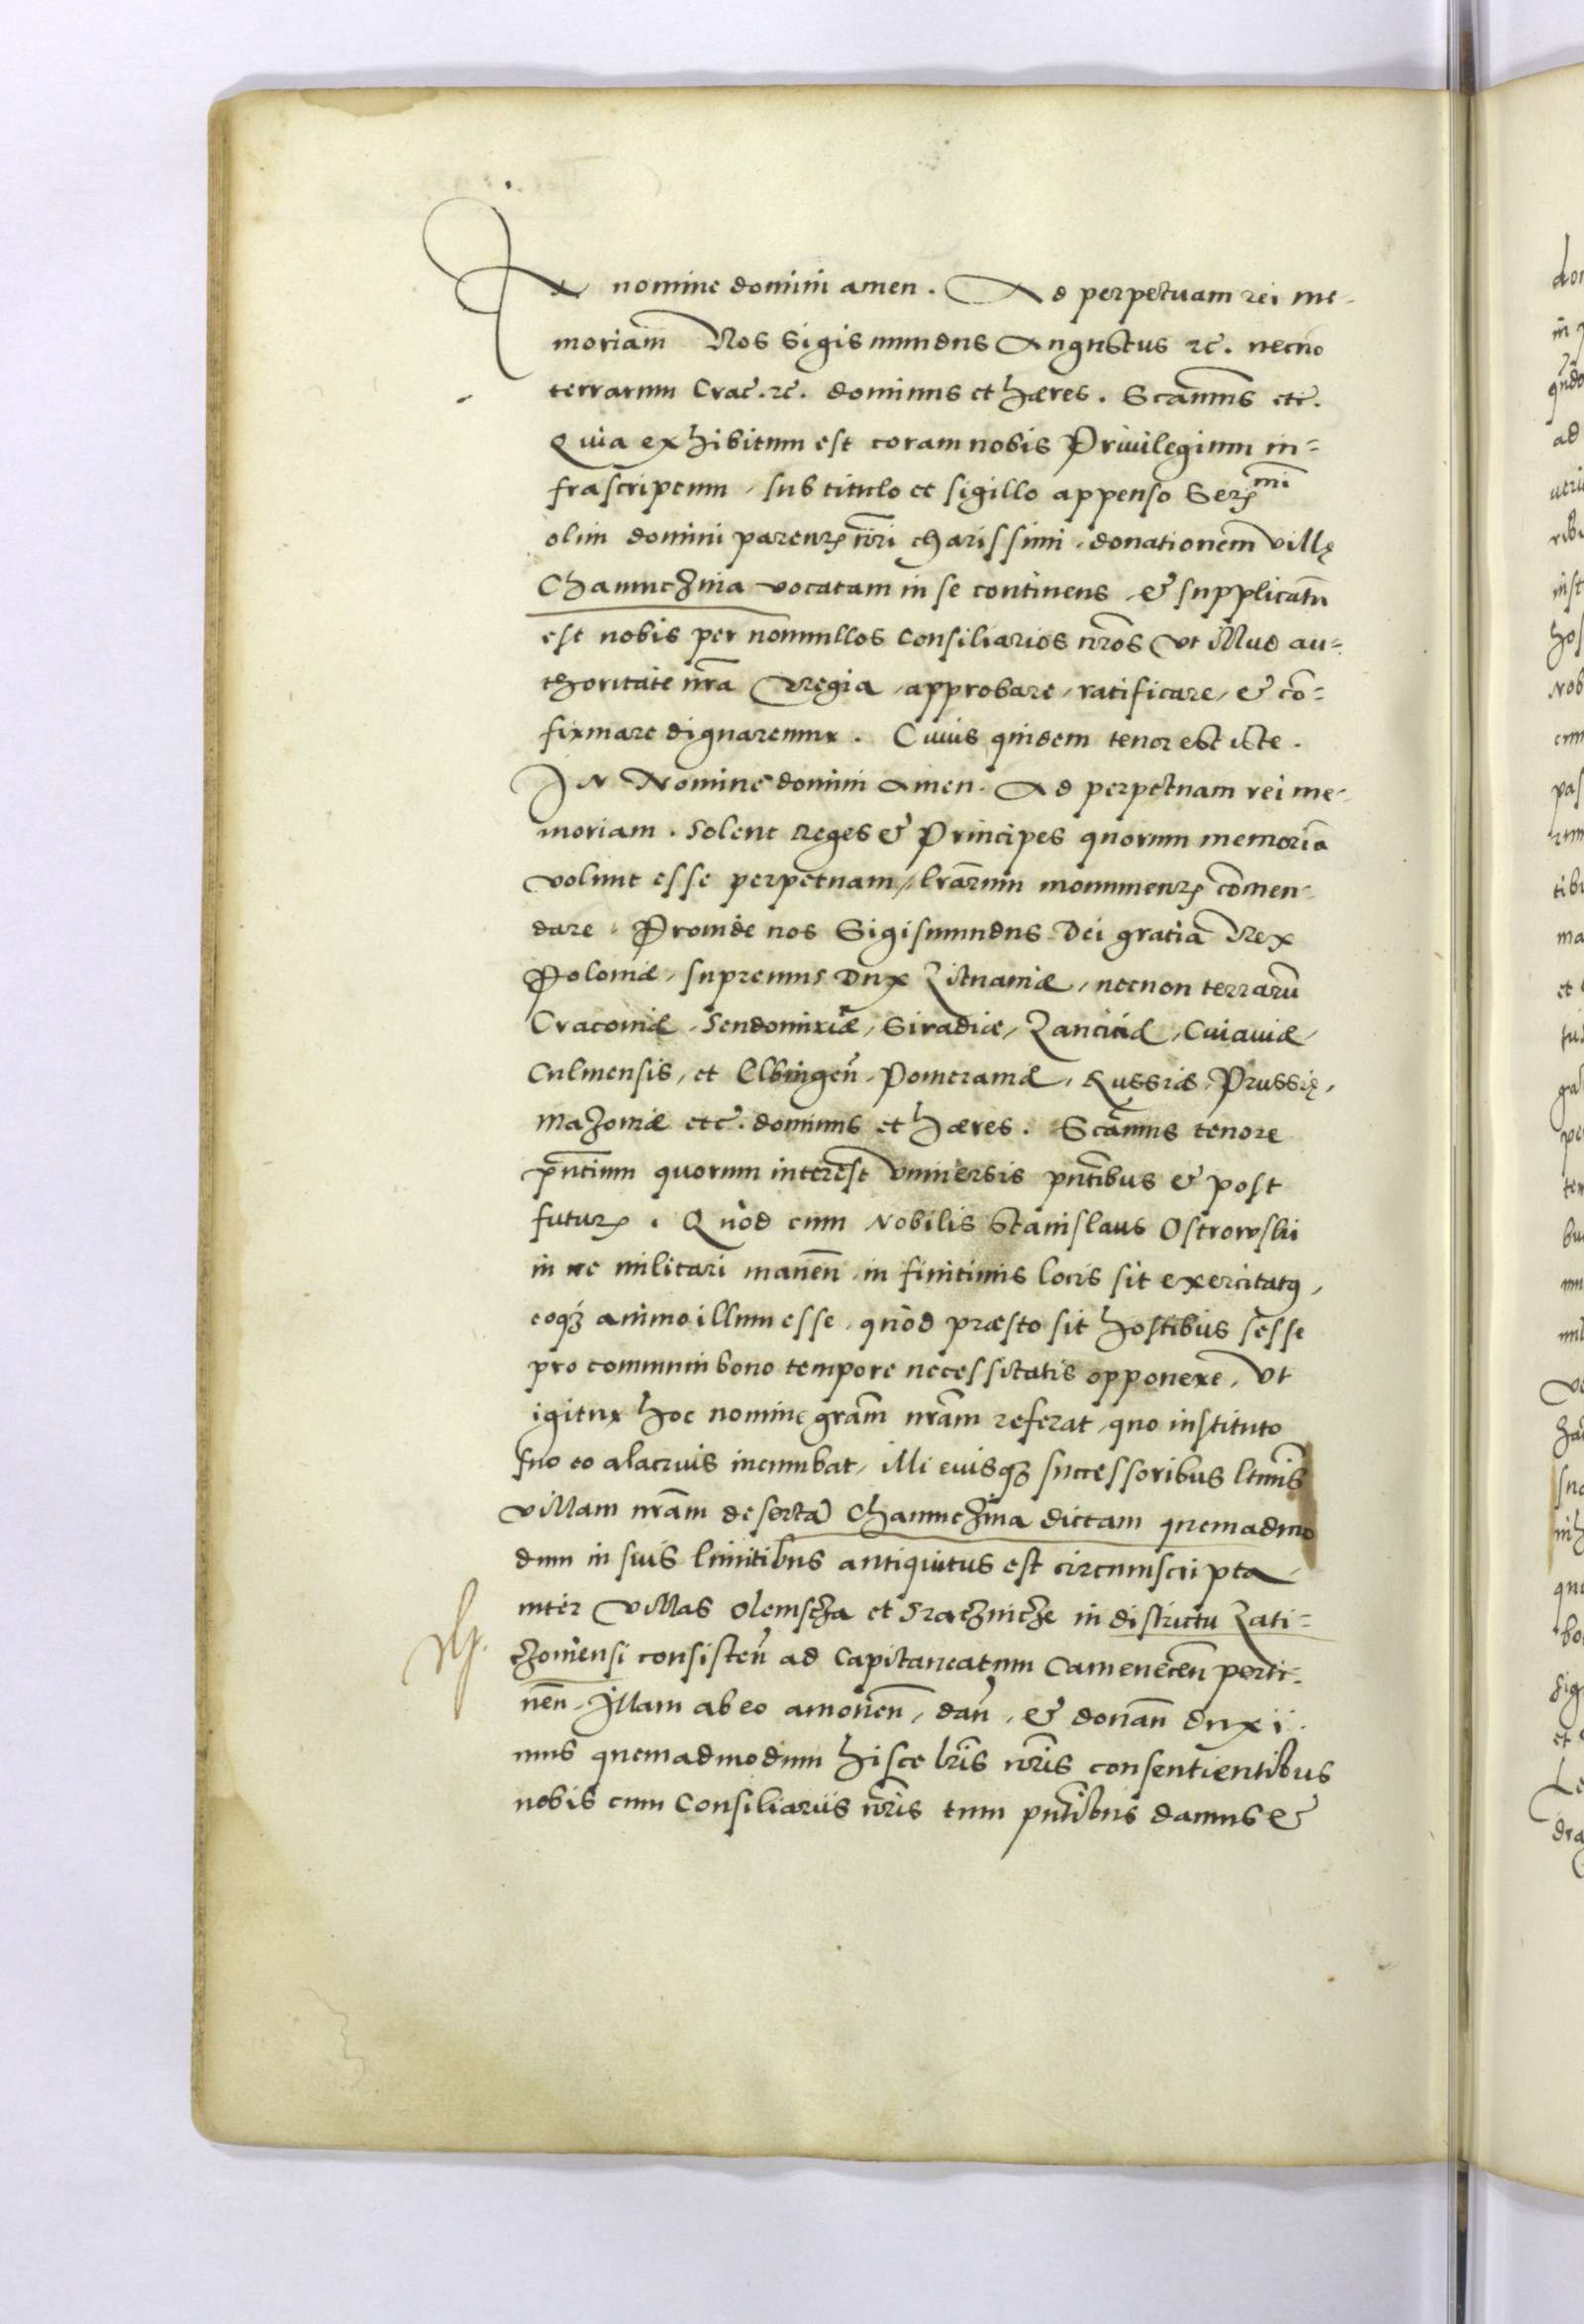 In nomine domini amen. Ad perpetuam rei me-
moriam Nos Sigismundus Augustus ꝛc. necnō
terrarum Crac̄. ꝛc. dominus et hæres. Scāmus etc̄.
Quia exhibitum est coram nobis Priuilegium in-
frascriptum, sub titulo et sigillo appenso Serꝫ mi
olim domini parentꝫ nr̄i charissimi, donationem villę
Chamnczina vocatam in se continens, & supplicatū
est nobis per nonnullos consiliarios nr̄os vt illud au-
thoritate nr̄a Regia, approbare, ratificare, & cō-
firmare dignaremur. Cuius quidem tenor est iste.
In Nomine domini Amen. Ad perpetuam rei me-
moriam. Solent Reges & Principes quorum memoriā
volunt esse perpetuam, lrārum monumentꝫ cōmen-
dare. Proinde nos Sigismundus Dei gratia Rex
Poloniæ, supremus Dux Lituaniæ, necnon terrarū
Cracouiæ, Sendomiriæ, Siradiæ, Lanciciæ, Cuiauiæ,
Culmensis, et Elbingeñ, Pomeraniæ, Russiæ, Prussię,
Mazouiæ etc̄. dominus et hæres. Scāmus tenore
pñtium quorum interest vniuersis pñtibus & post
futurꝫ. Quòd cum Nobilis Stanislaus Ostrowskii
in re militari maneñ in finitimis locis sit exercitatꝰ,
eoqꝫ animo illum esse, quòd præsto sit hostibus sesse
pro communi bono tempore necessitatis opponere, vt
igitur hoc nomine gr̄am nr̄am referat, quo instituto
suo eo alacrius incumbat, illi eiusqꝫ successoribus lt̄mis
villam nr̄am desertā Chamnczina dictam quemadmo
dum in suis limitibus antiquitus est circumscripta,
inter villas Olemscza et Sracznicze in districtu Lati-
czouiensi consisteñ ad Capitaneatum Cameneceñ perti-
neñ. Illam ab eo amoueñ, dañ, & donañ duxi-
mus quemadmodum hisce lr̄is nr̄is consentientibus
nobis cum Consiliariis nr̄is tum pñtibus damus &